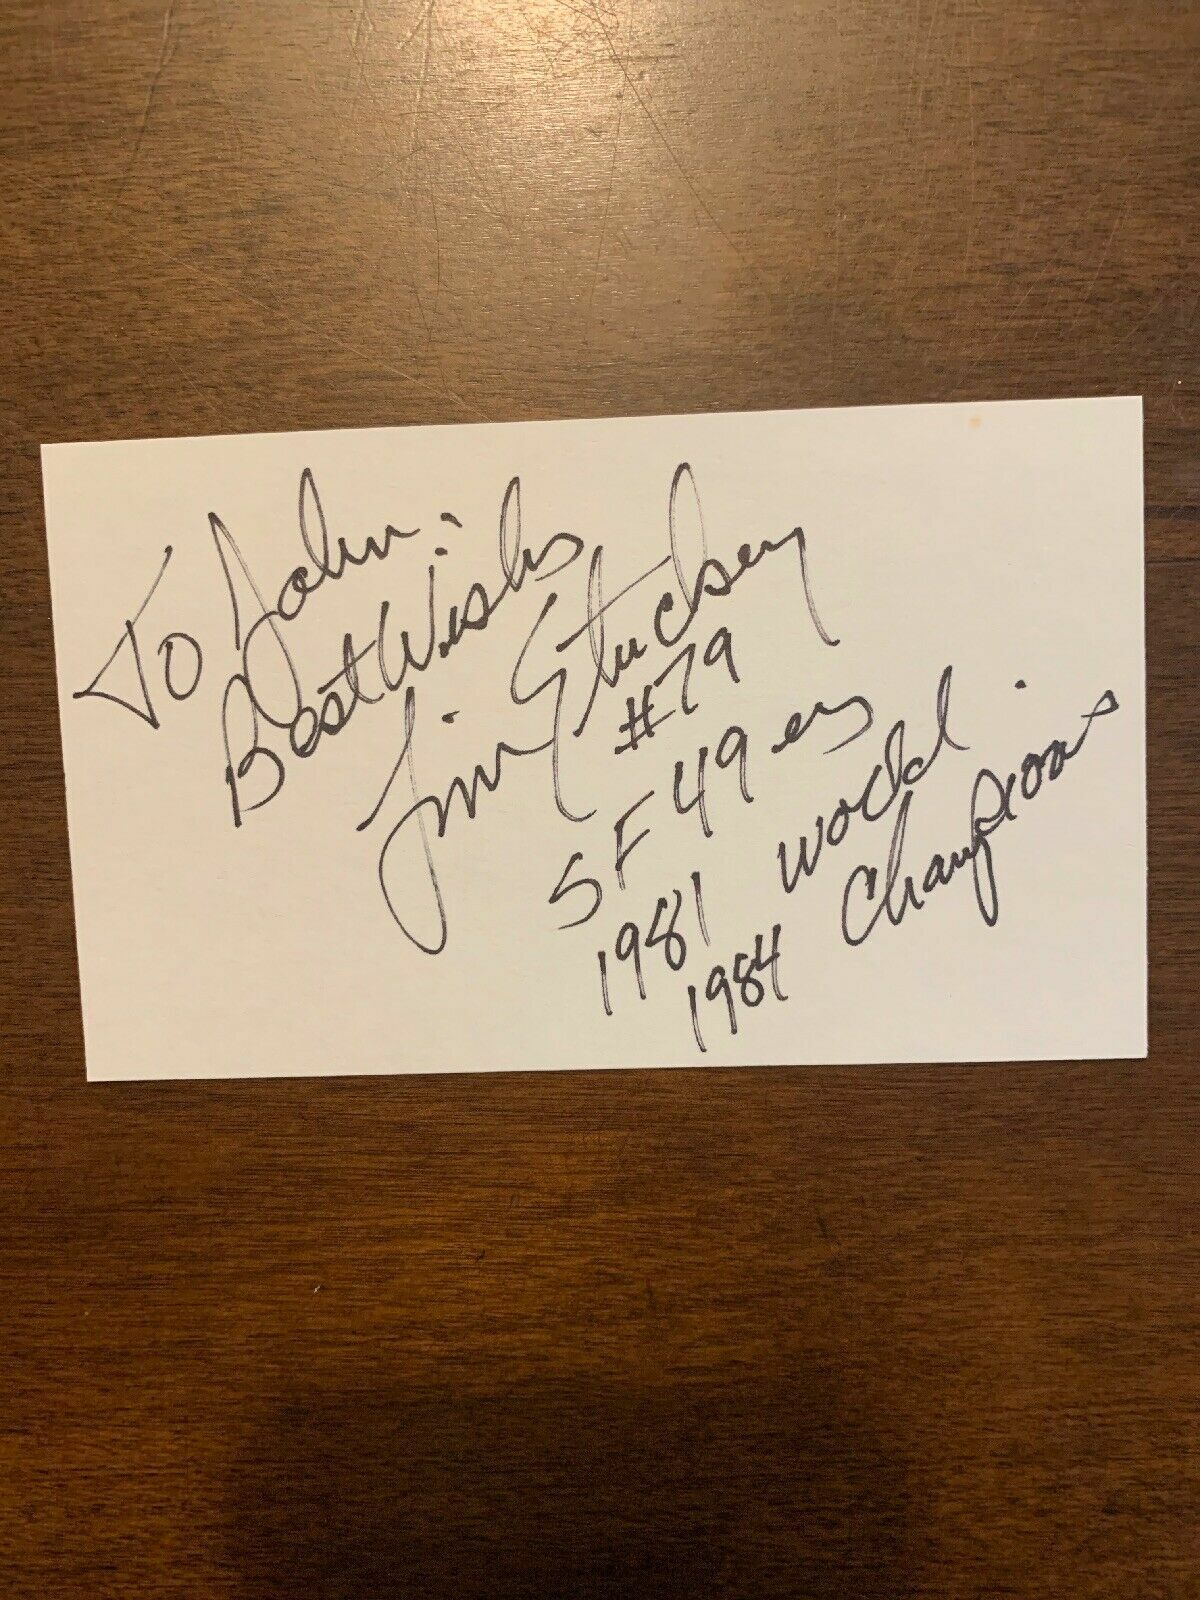 To John:
Best Wishs
Jim Stuckey
#79
SF 49ers
1981 World
1984 Champions